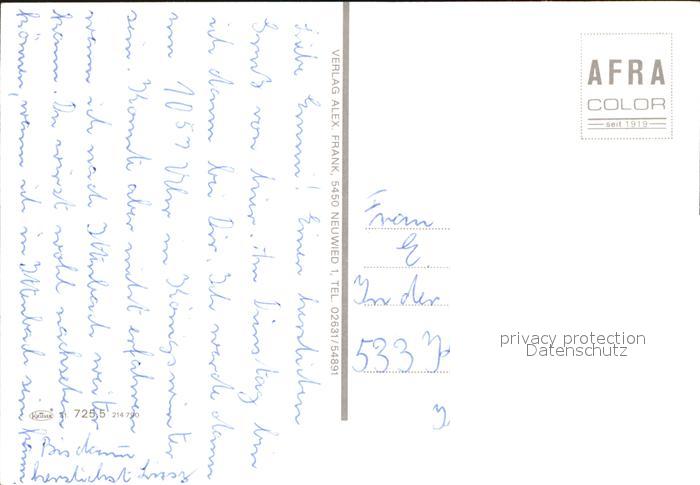 Liebe Emmi! Einen herzlichen
Gruß von hier. Am Dienstag bin
ich dann bei Dir. Ich werde dann
um 10 57 Uhr in Königswinter
sein. Konnte aber nicht erfahren
wann ich nach Ittenbach weiter
kann. Du wirst wohl nachsehen
können, wann ich in Ittenbach sein kann
Bis dann
herzlichst
VERLAG ALEX. FRANK, 5450 NEUWIED 1, TEL. 02631/54891
Krüger
725,5 214 790
AFRA
COLOR
seit 1919
Frau
E.
In der
533
privacy protection
Datenschutz